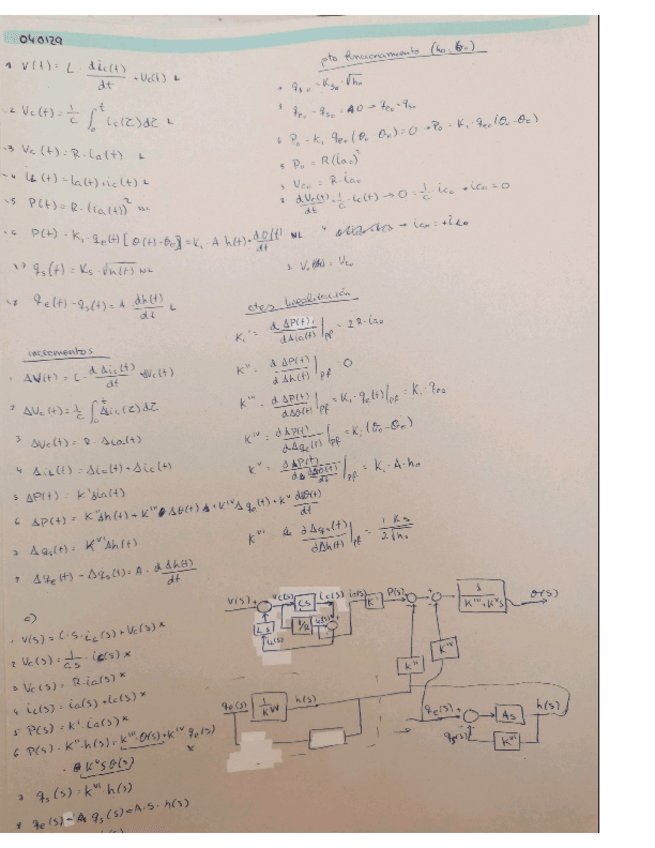 040129
1 V(t) = L · diL(t)/dt + Vc(t) L
2 Vc(t) = 1/C ∫₀ᵗ ic(τ)dτ L
3 Vc(t) = R · ia(t) L
4 iL(t) = ia(t) + ic(t) L
5 P(t) = R · (ia(t))² NL
6 P(t) - K₁ · qe(t) [θ(t) - θe] = K₁ · A h(t) · dθ(t)/dt NL
7 qs(t) = Ks · √h(t) NL
8 qe(t) - qs(t) = A dh(t)/dt L
pto funcionamiento (h₀, θ₀)
qs₀ = Ks₀ · √h₀
qe₀ - qs₀ = A0 → qe₀ = qs₀
P₀ - K₁ qe₀ (θ₀ - θe) = 0 → P₀ = K₁ · qe₀ (θ₀ - θe)
5 P₀ = R(ia₀)²
3 Vc₀ = R · ia₀
2 dVc(t)/dt = 1/C · ic(t) → 0 = 1/C · ic₀ → ic₀ = 0
4 → ia₀ = iL₀
1 V₀ = Vc₀
ctes Linealización
K' = d ΔP(t)/dΔia(t) |pf = 2R · ia₀
K'' = d ΔP(t)/d Δh(t) |pf = 0
K''' = d ΔP(t)/dΔθ(t) |pf = K₁ · qe(t)|pf = K₁ · qe₀
K^IV = dΔP(t)/dΔqe(t) |pf = K₁ (θ₀ - θe)
K^V = dΔP(t)/dΔdθ(t)/dt |pf = K₁ · A · h₀
K^VI = dΔqs(t)/dΔh(t) |pf = 1 Ks/2√h₀
incrementos
1 ΔV(t) = L · d ΔiL(t)/dt + ΔVc(t)
2 ΔVc(t) = 1/C ∫₀ᵗ Δic(τ)dτ
3 ΔVc(t) = R · Δia(t)
4 ΔiL(t) = Δia(t) + Δic(t)
5 ΔP(t) = K' Δia(t)
6 ΔP(t) = K'' Δh(t) + K''' Δθ(t) + K^IV Δqe(t) + K^V dθ(t)/dt
7 Δqs(t) = K^VI Δh(t)
8 Δqe(t) - Δqs(t) = A · dΔh(t)/dt
c)
1 V(s) = L · S · iL(s) + Vc(s) x
2 Vc(s) = 1/cs · ic(s) x
3 Vc(s) = R · ia(s) x
4 iL(s) = ia(s) + ic(s) x
5 P(s) = K' · ia(s) x
6 P(s) = K'' · h(s) + K''' · θ(s) + K^IV qe(s)
K^V s θ(s) x
7 qs(s) = K^VI h(s)
8 qe(s) - qs(s) = A · S · h(s)
V(s) + Vc(s) CS ic(s) ia(s) K' P(s) + - + - 1/K'''+K^V s θ(s)
L s 1/R
iL(s)
K'' K^IV
qs(s) 1/K^VI h(s)
qe(s) + - As h(s)
qs(s) K^VI